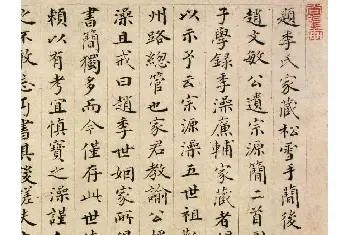 題李氏家藏松雪手簡後
趙文敏公遺宗源簡二首
子學錄李澡廉輔家藏者
以示予云宗源澡五世祖
州路總管也家君教諭公
澡且戒曰趙李世姻家所
書簡獨多而今僅存此世
賴以有考宜慎寶之澡謹
之不敢忘乃書其後嗟夫